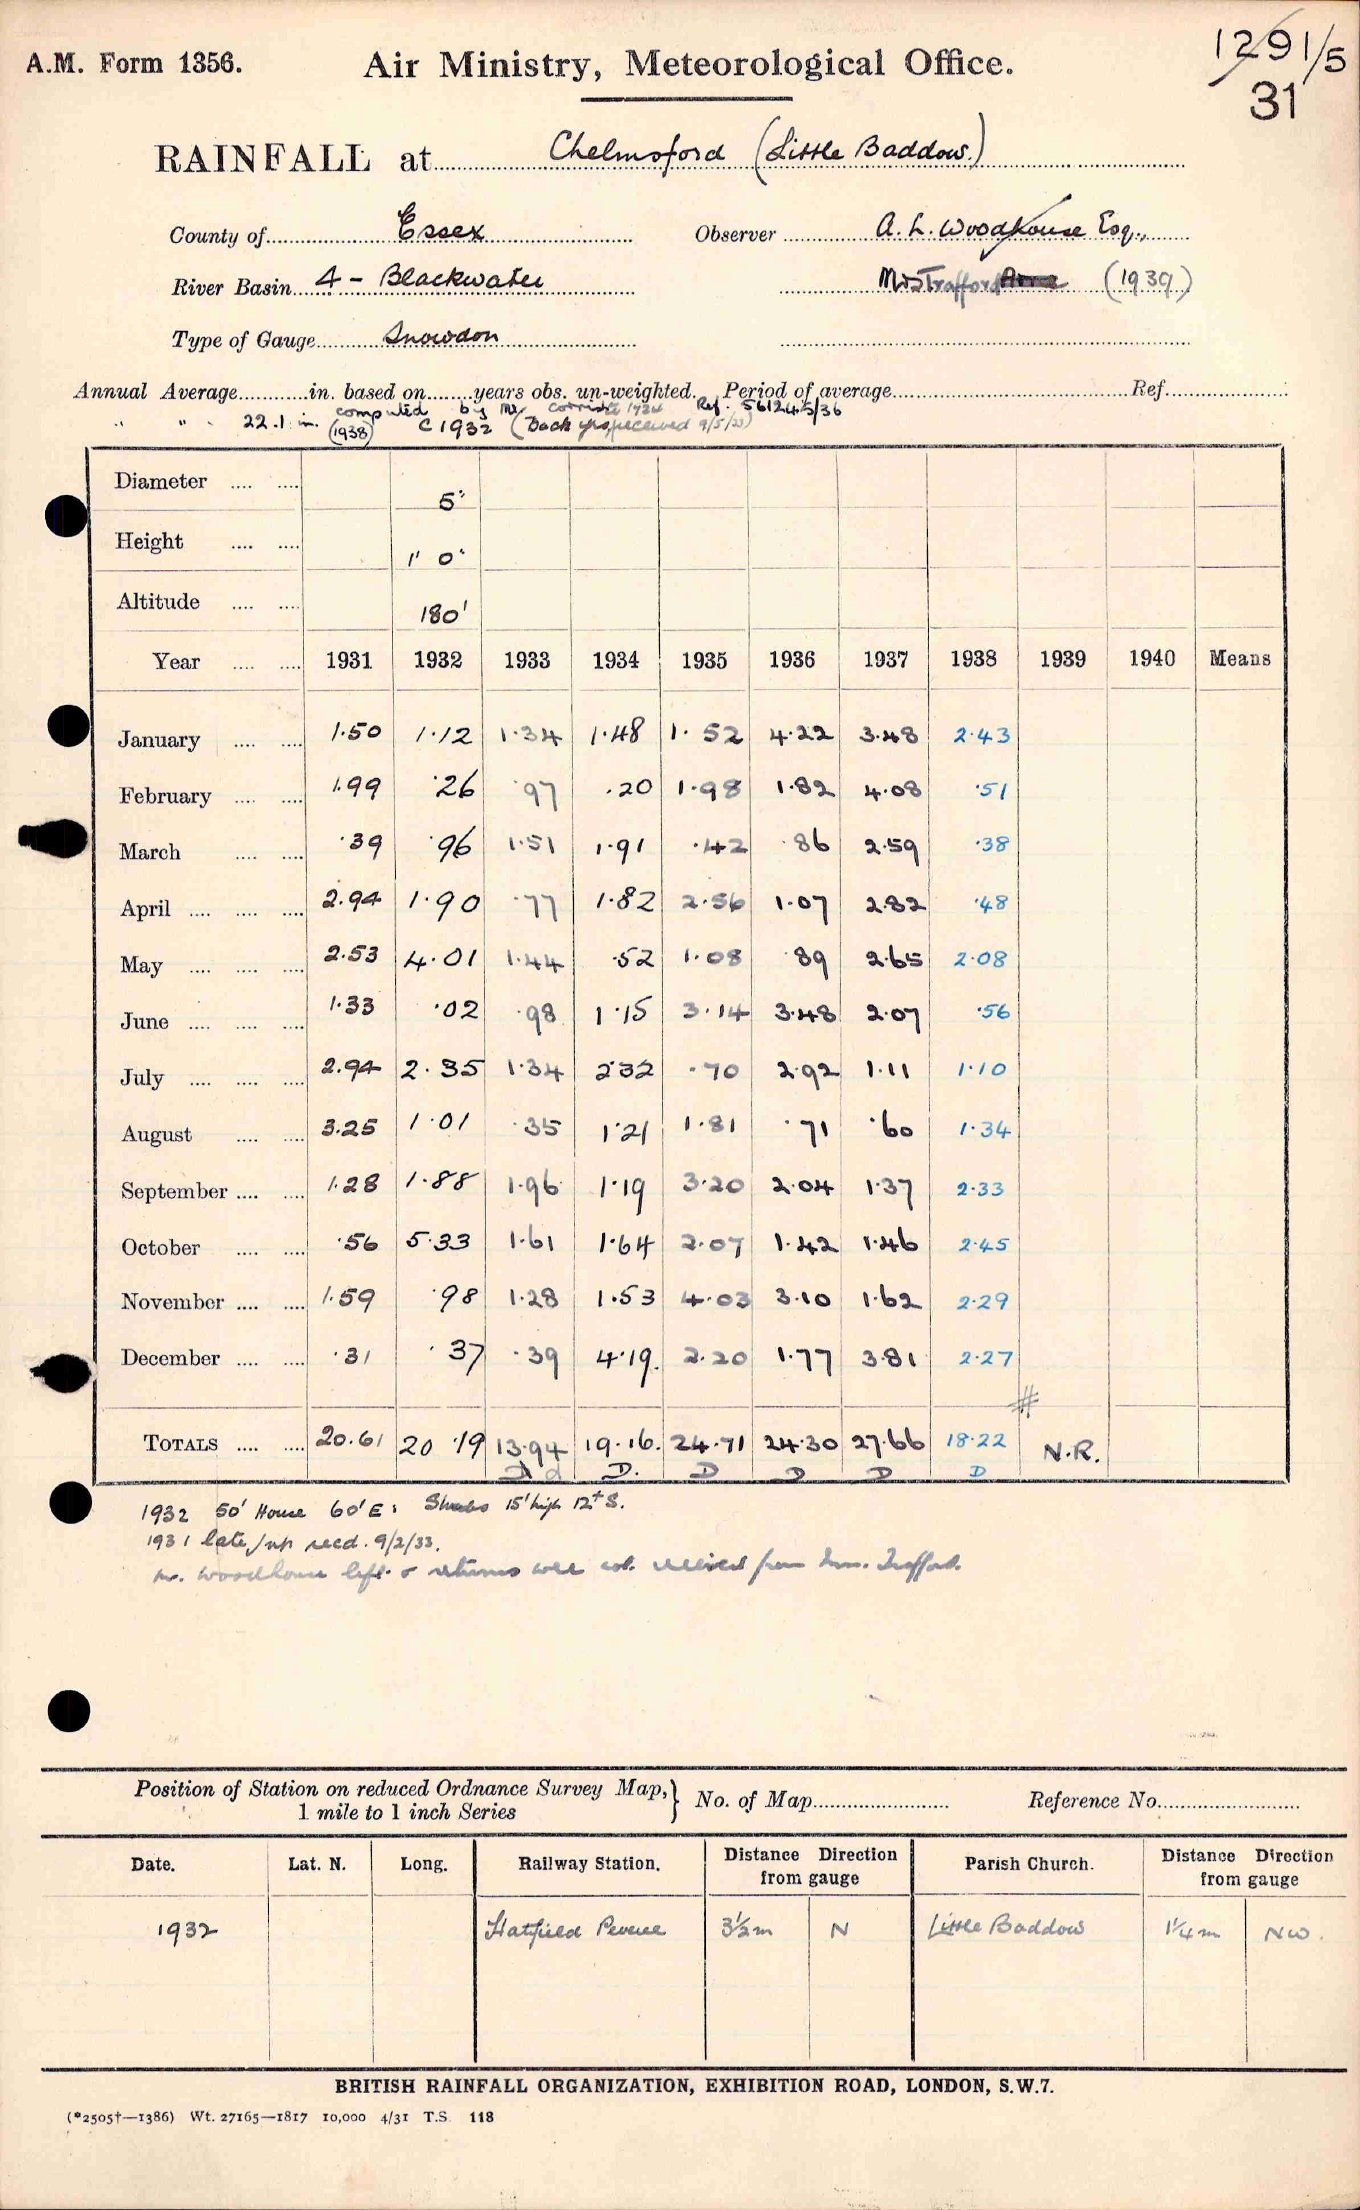 A.M. Form 1356.
Air Ministry, Meteorological Office.
1291/5
31
RAINFALL at Chelmsford (Little Baddow.)
County of Essex Observer A. L. Woodhouse Esq.,
River Basin 4 - Blackwater Mrs Trafford (1939)
Type of Gauge Snowdon
Annual Average in. based on years obs. un-weighted. Period of average Ref.
" " 22.1 in. computed by Mr Ref. 561245/36
(1938) C 1932 (Back yrs received 9/5/33)
Diameter 5"
Height 1' 0"
Altitude 180'
Year 1931 1932 1933 1934 1935 1936 1937 1938 1939 1940 Means
January 1.50 1.12 1.34 1.48 1.52 4.22 3.48 2.43
February 1.99 .26 .97 .20 1.98 1.82 4.08 .51
March .39 .96 1.51 1.91 .42 .86 2.59 .38
April 2.94 1.90 .77 1.82 2.56 1.07 2.82 .48
May 2.53 4.01 1.44 .52 1.08 .89 2.65 2.08
June 1.33 .02 .98 1.15 3.14 3.48 2.07 .56
July 2.94 2.35 1.34 2.32 .70 2.92 1.11 1.10
August 3.25 1.01 .35 1.21 1.81 .71 .60 1.34
September 1.28 1.88 1.96 1.19 3.20 2.04 1.37 2.33
October .56 5.33 1.61 1.64 2.07 1.42 1.46 2.45
November 1.59 .98 1.28 1.53 4.03 3.10 1.62 2.29
December .31 .37 .39 4.19. 2.20 1.77 3.81 2.27
#
TOTALS 20.61 20.19 13.94 19.16. 24.71 24.30 27.66 18.22 N.R.
D d D. D D D D
1932 50' House 60' E; Shrubs 15' high 12ft S.
1931 late recd. 9/2/33.
Mr. Woodhouse left & returns were not received from Mrs. Trafford.
Position of Station on reduced Ordnance Survey Map,
1 mile to 1 inch Series
No. of Map Reference No.
Date. Lat. N. Long. Railway Station. Distance Direction from gauge Parish Church. Distance Direction from gauge
1932 Hatfield Peverel 3½m N Little Baddow 1¼m NW.
BRITISH RAINFALL ORGANIZATION, EXHIBITION ROAD, LONDON, S.W.7.
(*2505†—1386) Wt. 27165—1817 10,000 4/31 T.S. 118